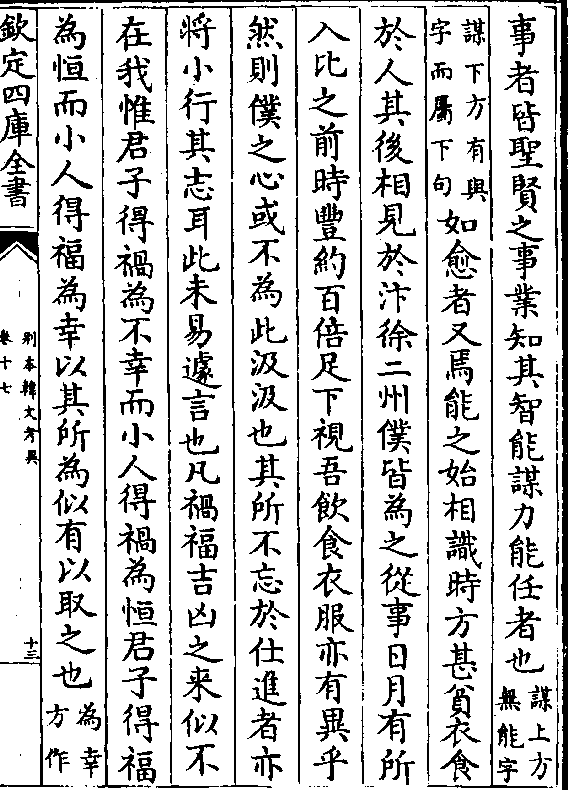 事者皆聖賢之事業知其智能謀力能任者也謀上方無能字
謀下方有與字而屬下句如愈者又焉能之始相識時方甚貧衣食
於人其後相見於汴徐二州僕皆為之從事日月有所
入比之前時豐約百倍足下視吾飲食衣服亦有異乎
然則僕之心或不為此汲汲也其所不忘於仕進者亦
將小行其志耳此未易遽言也凡禍福吉凶之来似不
在我惟君子得禍為不幸而小人得禍為恒君子得福
為恒而小人得福為幸以其所為似有以取之也為幸方作
欽定四庫全書
别本韓文考異
卷十七
十三